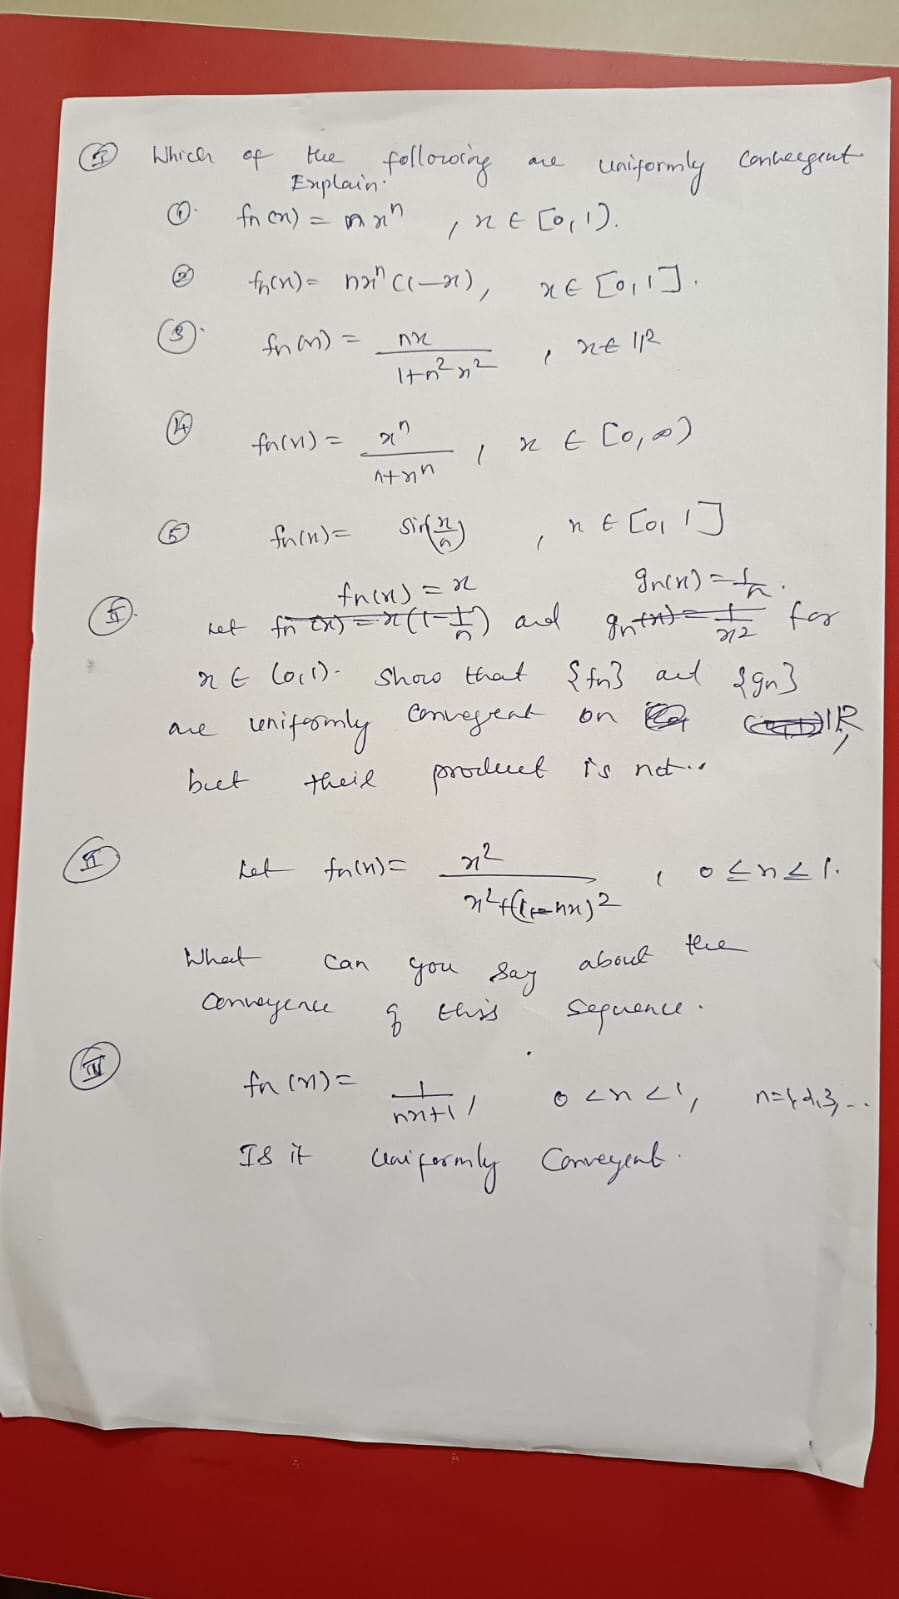 I Which of the following are uniformly convergent
Explain.
①. fn(x) = n xⁿ , x ∈ [0,1).
② fn(x) = nxⁿ(1-x), x ∈ [0,1].
③. fn(x) = nx / (1+n²x²) , x ∈ IR
④ fn(x) = xⁿ / (n+xⁿ) , x ∈ [0,∞)
⑤ fn(x) = sin(x/n) , x ∈ [0,1]
fn(x) = x gn(x) = 1/n.
II. Let fn(x) = x(1-1/n) and gn(x) = 1/x² for
x ∈ (0,1). Show that {fn} and {gn}
are uniformly convergent on IR,
but their product is not..
II Let fn(x) = x² / (x²+(1-nx)²) , 0 ≤ x ≤ 1.
What can you say about the
convergence of this sequence.
IV fn(x) = 1/(nx+1) , 0 < x < 1, n=1,2,3,...
Is it uniformly convergent.